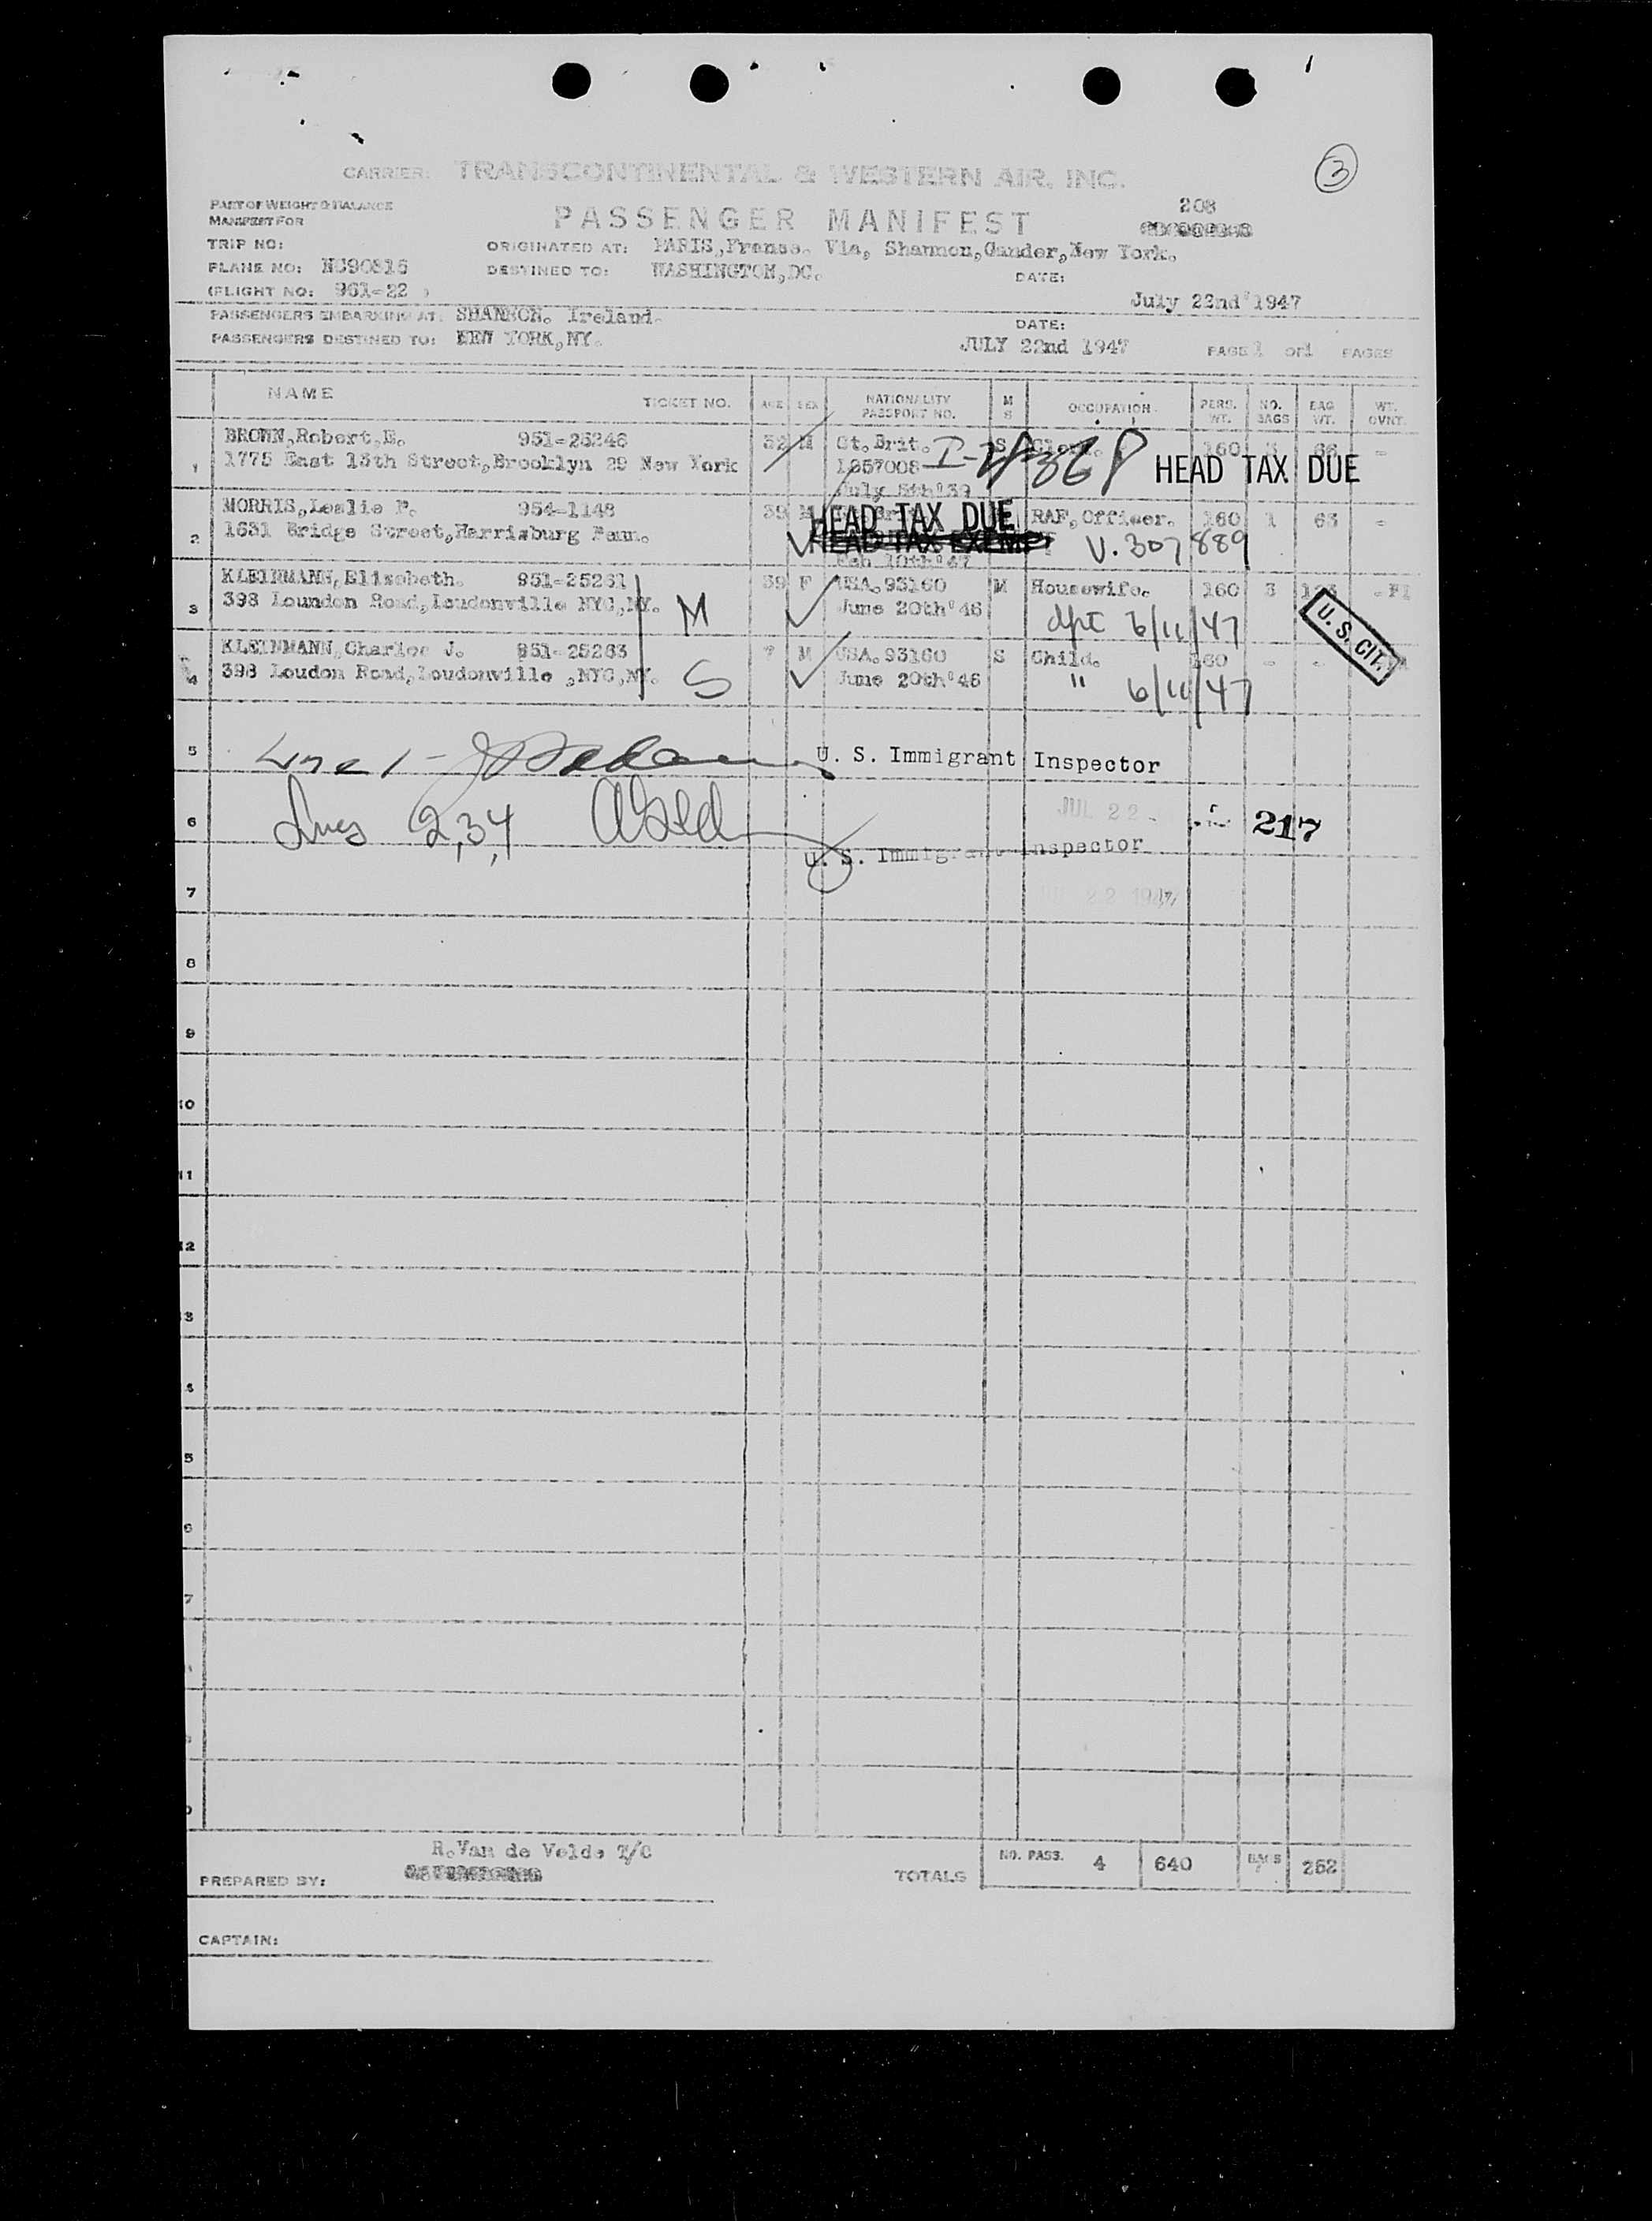 3
CARRIER: TRANSCONTINENTAL & WESTERN AIR, INC.
PART OF WEIGHT & BALANCE
MANIFEST FOR
PASSENGER MANIFEST
208
TRIP NO:
ORIGINATED AT: PARIS, France. Via, Shannon, Gander, New York.
PLANE NO: NC90816
DESTINED TO: WASHINGTON, DC.
DATE:
(FLIGHT NO: 961-22 )
July 22nd'1947
PASSENGERS EMBARKING AT: SHANNON. Ireland.
DATE:
PASSENGERS DESTINED TO: NEW YORK, NY.
JULY 22nd 1947
PAGE 1 OF 1 PAGES
NAME TICKET NO. AGE SEX NATIONALITY PASSPORT NO. M S OCCUPATION PERS. WT. NO. BAGS BAG WT. WT. OVNT.
1 BROWN, Robert, E. 951-25248 32 M Gt. Brit. S 160 3
1775 East 13th Street, Brooklyn 29 New York 1857008 HEAD TAX DUE
July 5th'39
2 MORRIS, Leslie F. 954-1148 39 M HEAD TAX DUE RAF, Officer. 160 1 63 -
1631 Bridge Street, Harrisburg Penn. HEAD TAX EXEMPT V. 307889
Feb 10th'47
3 KLEINMANN, Elisabeth. 951-25261 39 F USA. 93160 M Housewife. 160 3
398 Loundon Road, Loudonville NYC, NY. M June 20th'46 6/11/47
U. S. CIT.
4 KLEINMANN, Charles J. 951-25263 7 M USA. 93160 S Child. 160 - -
398 Loudon Road, Loudonville , NYC, NY. S June 20th'46 " 6/11/47
5 Line 1 - U. S. Immigrant Inspector
6 Lines 2,3,4 JUL 22 217
U. S. Immigrant Inspector
7 JUL 22 1947
8
9
10
11
12
3
5
6
7
R. Van de Velde T/C
PREPARED BY:
TOTALS NO. PASS. 4 640 BAGS 7 252
CAPTAIN: